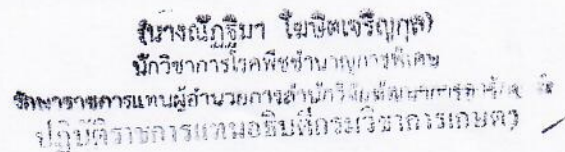 (นางณัฏฐิมา โฆษิตเจริญกุล)
นักวิชาการโรคพืชชำนาญการพิเศษ
รักษาราชการแทนผู้อำนวยการสำนักวิจัยพัฒนาการอารักขาพืช
ปฏิบัติราชการแทนอธิบดีกรมวิชาการเกษตร